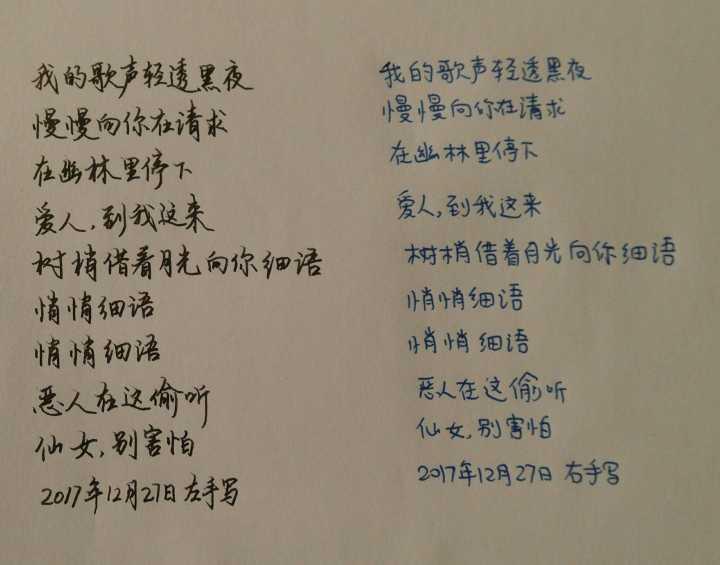 我的歌声轻透黑夜
慢慢向你在请求
在幽林里停下
爱人,到我这来
树梢借着月光向你细语
悄悄细语
悄悄细语
恶人在这偷听
仙女,别害怕
2017年12月27日左手写
我的歌声轻透黑夜
慢慢向你在请求
在幽林里停下
爱人,到我这来
树梢借着月光向你细语
悄悄细语
悄悄细语
恶人在这偷听
仙女,别害怕
2017年12月27日 右手写